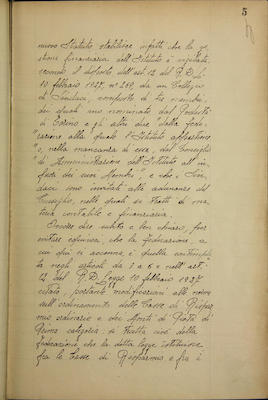 5
nuovo Statuto stabilisce infatti che la ge
stione finanziaria dell'Istituto è vigilata,
secondo il disposto dell'art. 12 del R.D.
10 febbraio 1927, n° 269, da un Collegio
di Sindaci, composto di tre membri,
dei quali uno nominato dal Podestà
di Torino e gli altri due dalla Fede-
razione alla quale l'Istituto appartiene
"o, nella mancanza di essa, dal Consiglio
"di Amministrazione dell'Istituto all'in
fuori dei suoi Membri", e che i Sin,
daci sono invitati alle adunanze del
Consiglio, nelle quali si tratti di ma,
teria contabile e finanziaria.
Occorre dire subito e ben chiaro, per
evitare equivoci, che la Federazione, a
cui qui si accenna, è quella contemplata
ta negli articoli da 1 a 6 e nell'art.
12 del R.D. Legge 10 febbraio 1927
citato, portante modificazioni alle norme
sull'ordinamento delle Casse di Rispar
mio ordinarie e dei Monti di Pietà di
Prima categoria: si tratta cioè della
Federazione che la detta legge istituisce
fra le Casse di Risparmio e fra i